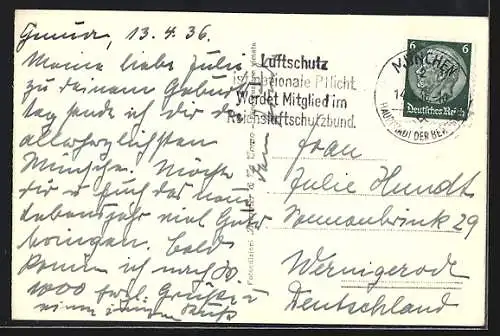 Genua, 13.4.36.
Meine liebe Julie
zu deinem Geburts
tag sende ich dir die
allerherzlichsten
Wünsche. Möchte
dir u. Euch das neue
Lebensjahr viel Gutes
bringen. Bald
komme ich nach
1000 Grüße u.
einen innigen Kuß
Luftschutz
ist nationale Pflicht
Werdet Mitglied im
Reichsluftschutzbund.
MÜNCHEN
14
HAUPTSTADT DER BEWEGUNG
6 6
Deutsches Reich
Frau
Julie Hundt
Sonnenbrink 29
Wernigerode
Deutschland